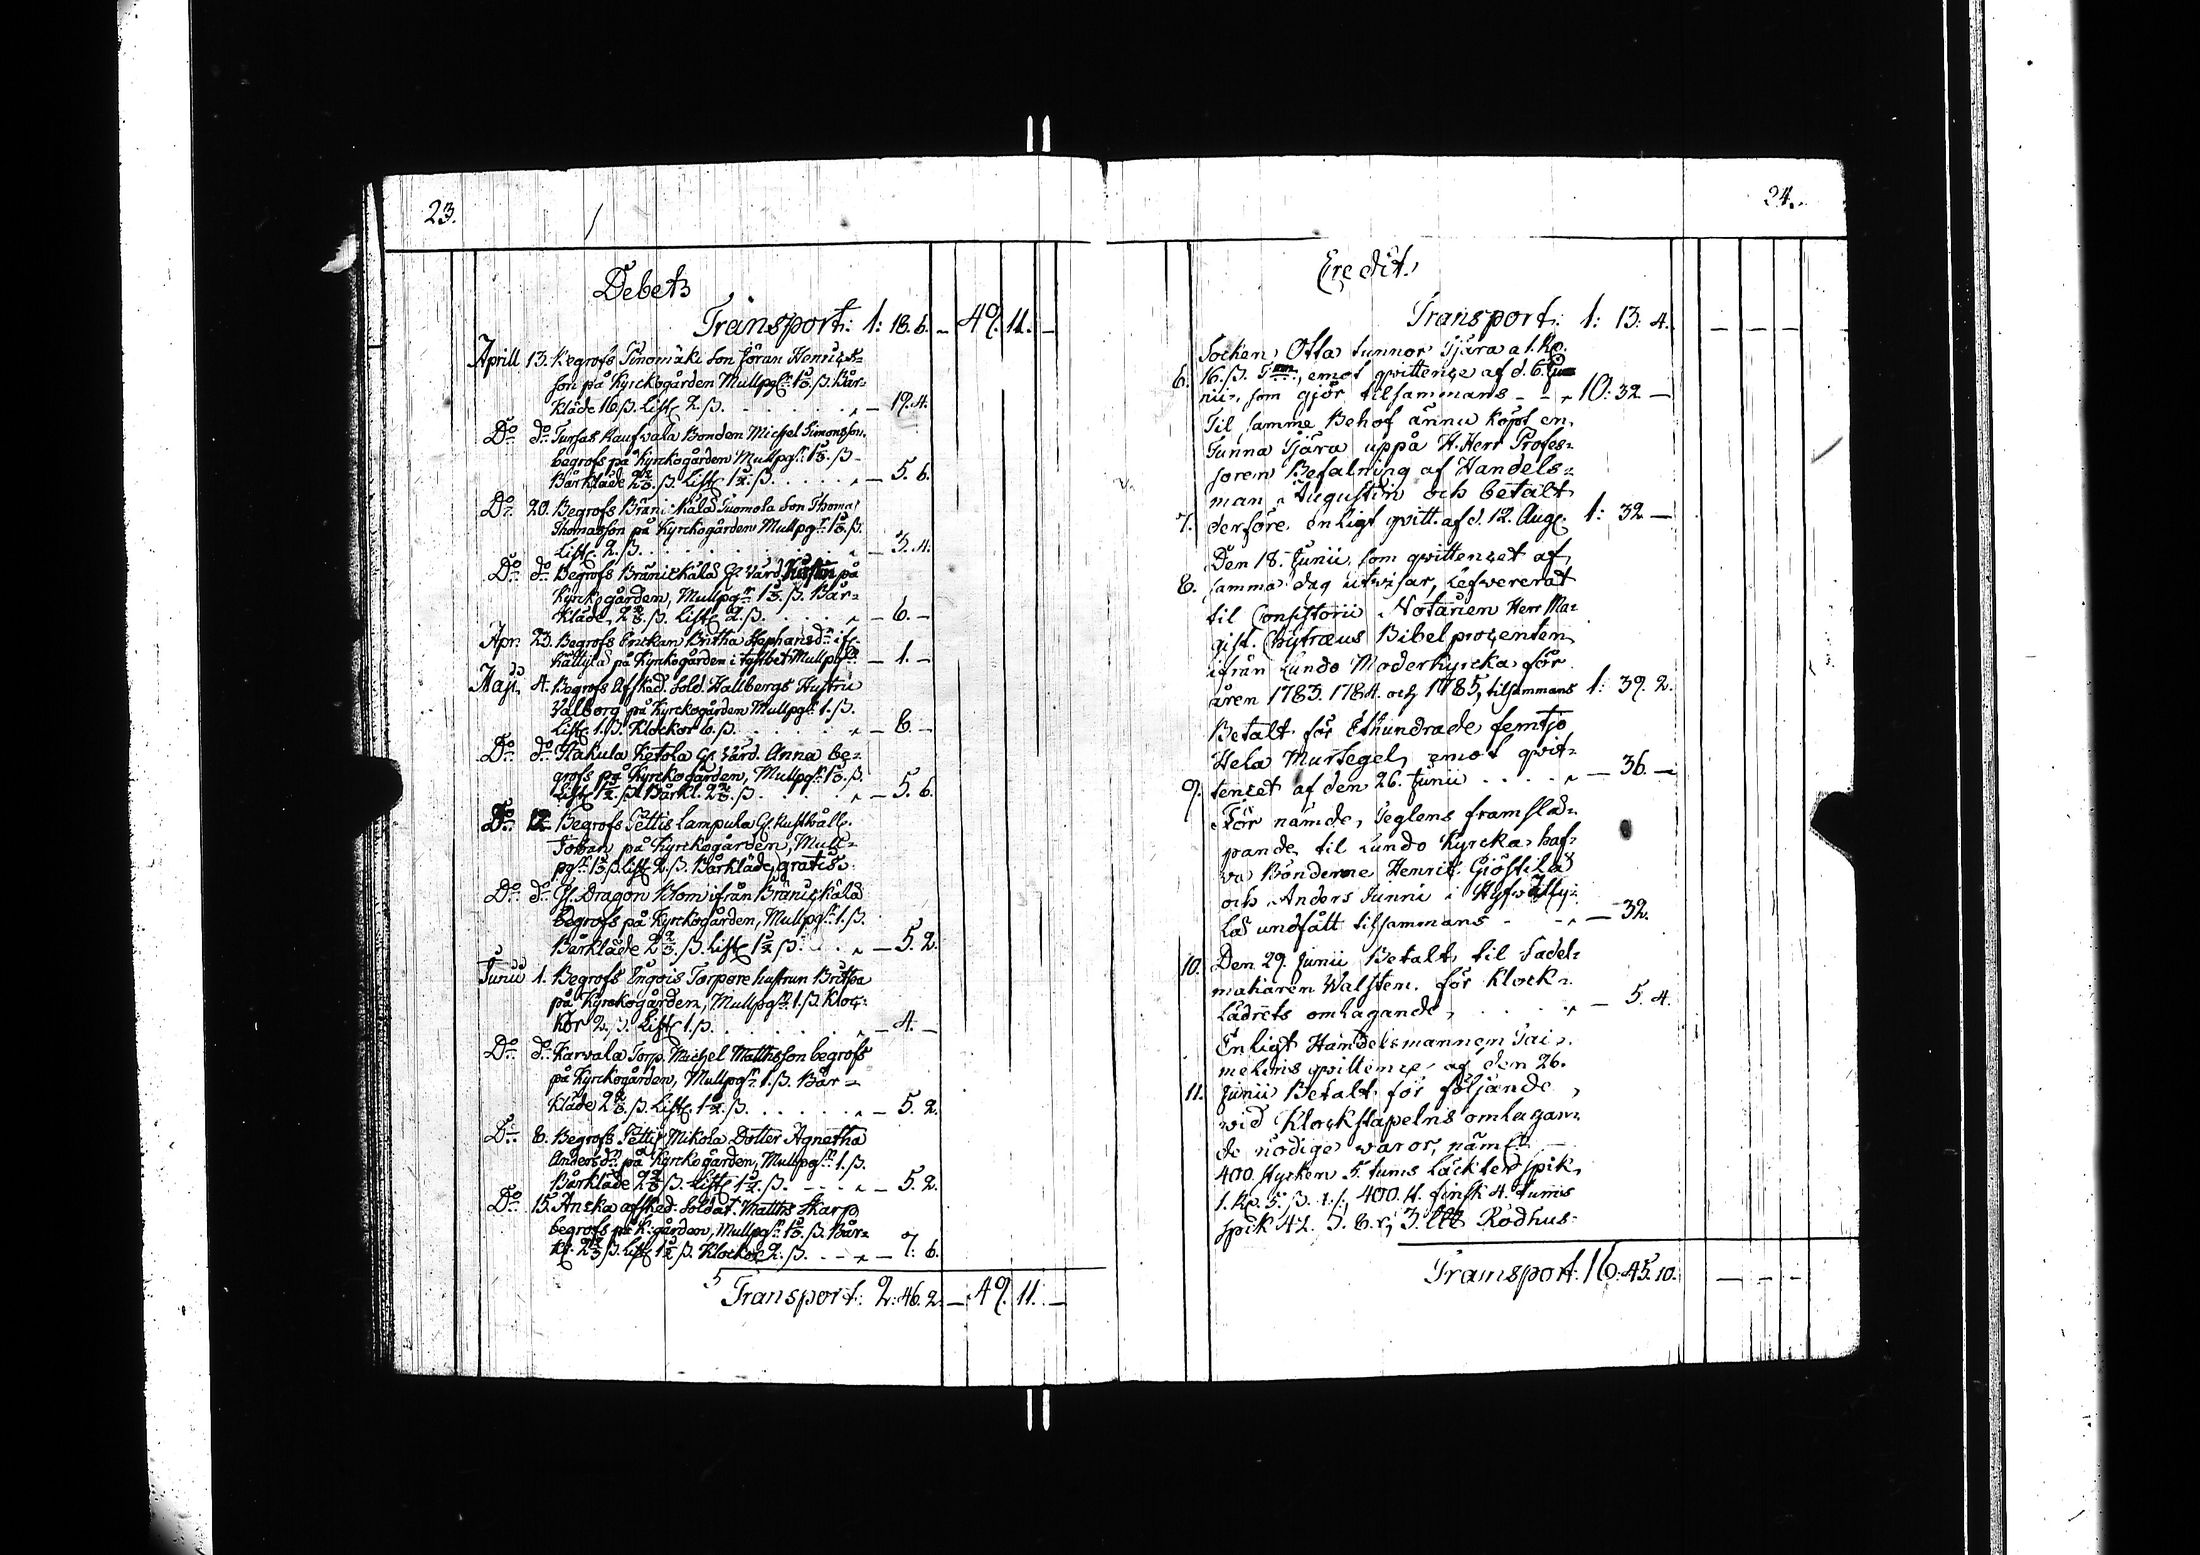 23.
Debet
Transport: 1: 18. 6. — 49. 11. —
Aprill 13. Begrofs Sinomäki Son Jöran Henrics-
son på Kyrckogården Mullpg:n 1 1/3. ß. Bår-
kläde 16. ß. List. 2. ß. . . . „ — 19. 4.
Do do Tursas Kaufvala Bonden Michel Simonsson
begrofs på Kyrckogården Mullpg:n 1 1/3. ß.
Bårkläde 2 2/3. ß. List. 1 1/2. ß. . . . „ — 5. 6.
Do 20. Begrofs Bränikälä Tuomola Son Thomas
Thomasson på Kyrckogården Mullpg:n 1 1/3. ß.
List. 2. ß. . . . „ — 3. 4.
Do do Begrofs Bränickälä Gl. Värd. på
Kyrckogården, Mullpg:n 1 1/3. ß. Bår-
kläde, 2 2/3. ß. List. 2. ß. . . . — 6. —
Apr. 23. Begrofs Enckan Britha Stephansdr. ifr.
Kättylä på Kyrckogården i Mullpg:n — 1. —
Maji 4. Begrofs Afsked. Sold. Hallbergs Hustru
Valborg på Kyrckogården Mullpg:n 1. ß.
List. 1. ß. Klockor 6. ß. . . . „ — 8. —
Do do Nakula Ketola Gl. Värd. Anna be-
grofs på Kyrckogården, Mullpg:n 1 1/3. ß.
List. 1 1/2. ß. Bårkl. 2 2/3. ß. . . . „ — 5. 6.
Do 12. Begrofs Pettis Lampula Gl. Rusthåll.
Johan på Kyrckogården, Mull-
pg:n 1 1/3. ß. List. 2. ß. Bårkläde gratis.
Do do Gl. Dragon Blom ifrån Bränickälä
begrofs på Kyrckogården, Mullpg:n 1. ß.
Bårkläde 2 2/3. ß. List. 1 1/2 ß. . . „ — 5. 2.
Junii 1. Begrofs Engois Torpare hustrun Britha
på Kyrckogården, Mullpg:n 1. ß. Kloc-
kor 2. ß. List. 1. ß. . . . „ — 4. —
Do do Karvala Torp. Michel Matthsson begrofs
på Kyrckogården, Mullpg:n 1. ß. Bår-
kläde 2 2/3. ß. List. 1 1/2. ß. . . . „ — 5. 2.
Do 8. Begrofs Pettis Mikola Dotter Agnetha
Andersdr. på Kyrckogården, Mullpg:n 1. ß.
Bårkläde 2 2/3 ß. List. 1 1/2. ß. - - - „ — 5. 2.
Do 15. Anska afsked. Soldat. Matths Skarp
begrofs på K:gården, Mullpg:n 1 1/3. ß. Bår-
kl. 2 2/3 ß. List. 1 1/2 ß. Klockor 2. ß. - - „ — 7. 6.
Transport: 2: 46. 2. — 49. 11. —
24.
Credit.
Transport: 1: 13: 4. — — — —
Socken Otta tunnor Tjära a 1. Rd.
6. 16. ß. emot qvittence af d. 6. Ju
nii, som gjör tilsammans - - „ 10: 32 —
Til samme Behof ännu köpt en
Tunna Tjära uppå H. Herr Profes-
soren Befalning af Handels-
man Augustin och betalt
7. derföre enligt qvitt. af d. 12. Aug. 1: 32 —
Den 18. Junii, som qvittencet af
8. samma dag utvisar, Lefvererat
til Consistorii Notarien Herr Ma-
gist. Chytræus Bibelprocenten
ifrån Lundo Moderkyrcka för
åren 1783. 1784. och 1785, tilsammans 1: 39. 2.
Betalt för Ethundrade femtjo
Hela Murtegel emot qvit-
9. tencet af den 26. Junii . . . „ — 36. —
För nämde Teglens framslä-
pande til Lundo Kyrcka, haf-
va Bönderne Henric Gjöstilä
och Anders Junni i Hyfvätty-
lä undfått tilsammans - „ — 32.
10. Den 29. Junii Betalt til Sadel-
makaren Walsten. för Klock-
lädrets omlagande, . . . „ — 5. 4.
Enligt Handelsmannen Tai-
melins qvittence af den 26.
11. Junii Betalt för följande
wid Klockstapelns omlagan-
de nödige waror, näml.
400. stycken 5. tums Läckter spik
1. Rd. 5. ß. 400. st. finsk 4. tums
spik 42. ß. 8. r, 3. Rödhus-
Transport: 16: 45. 10. — — —